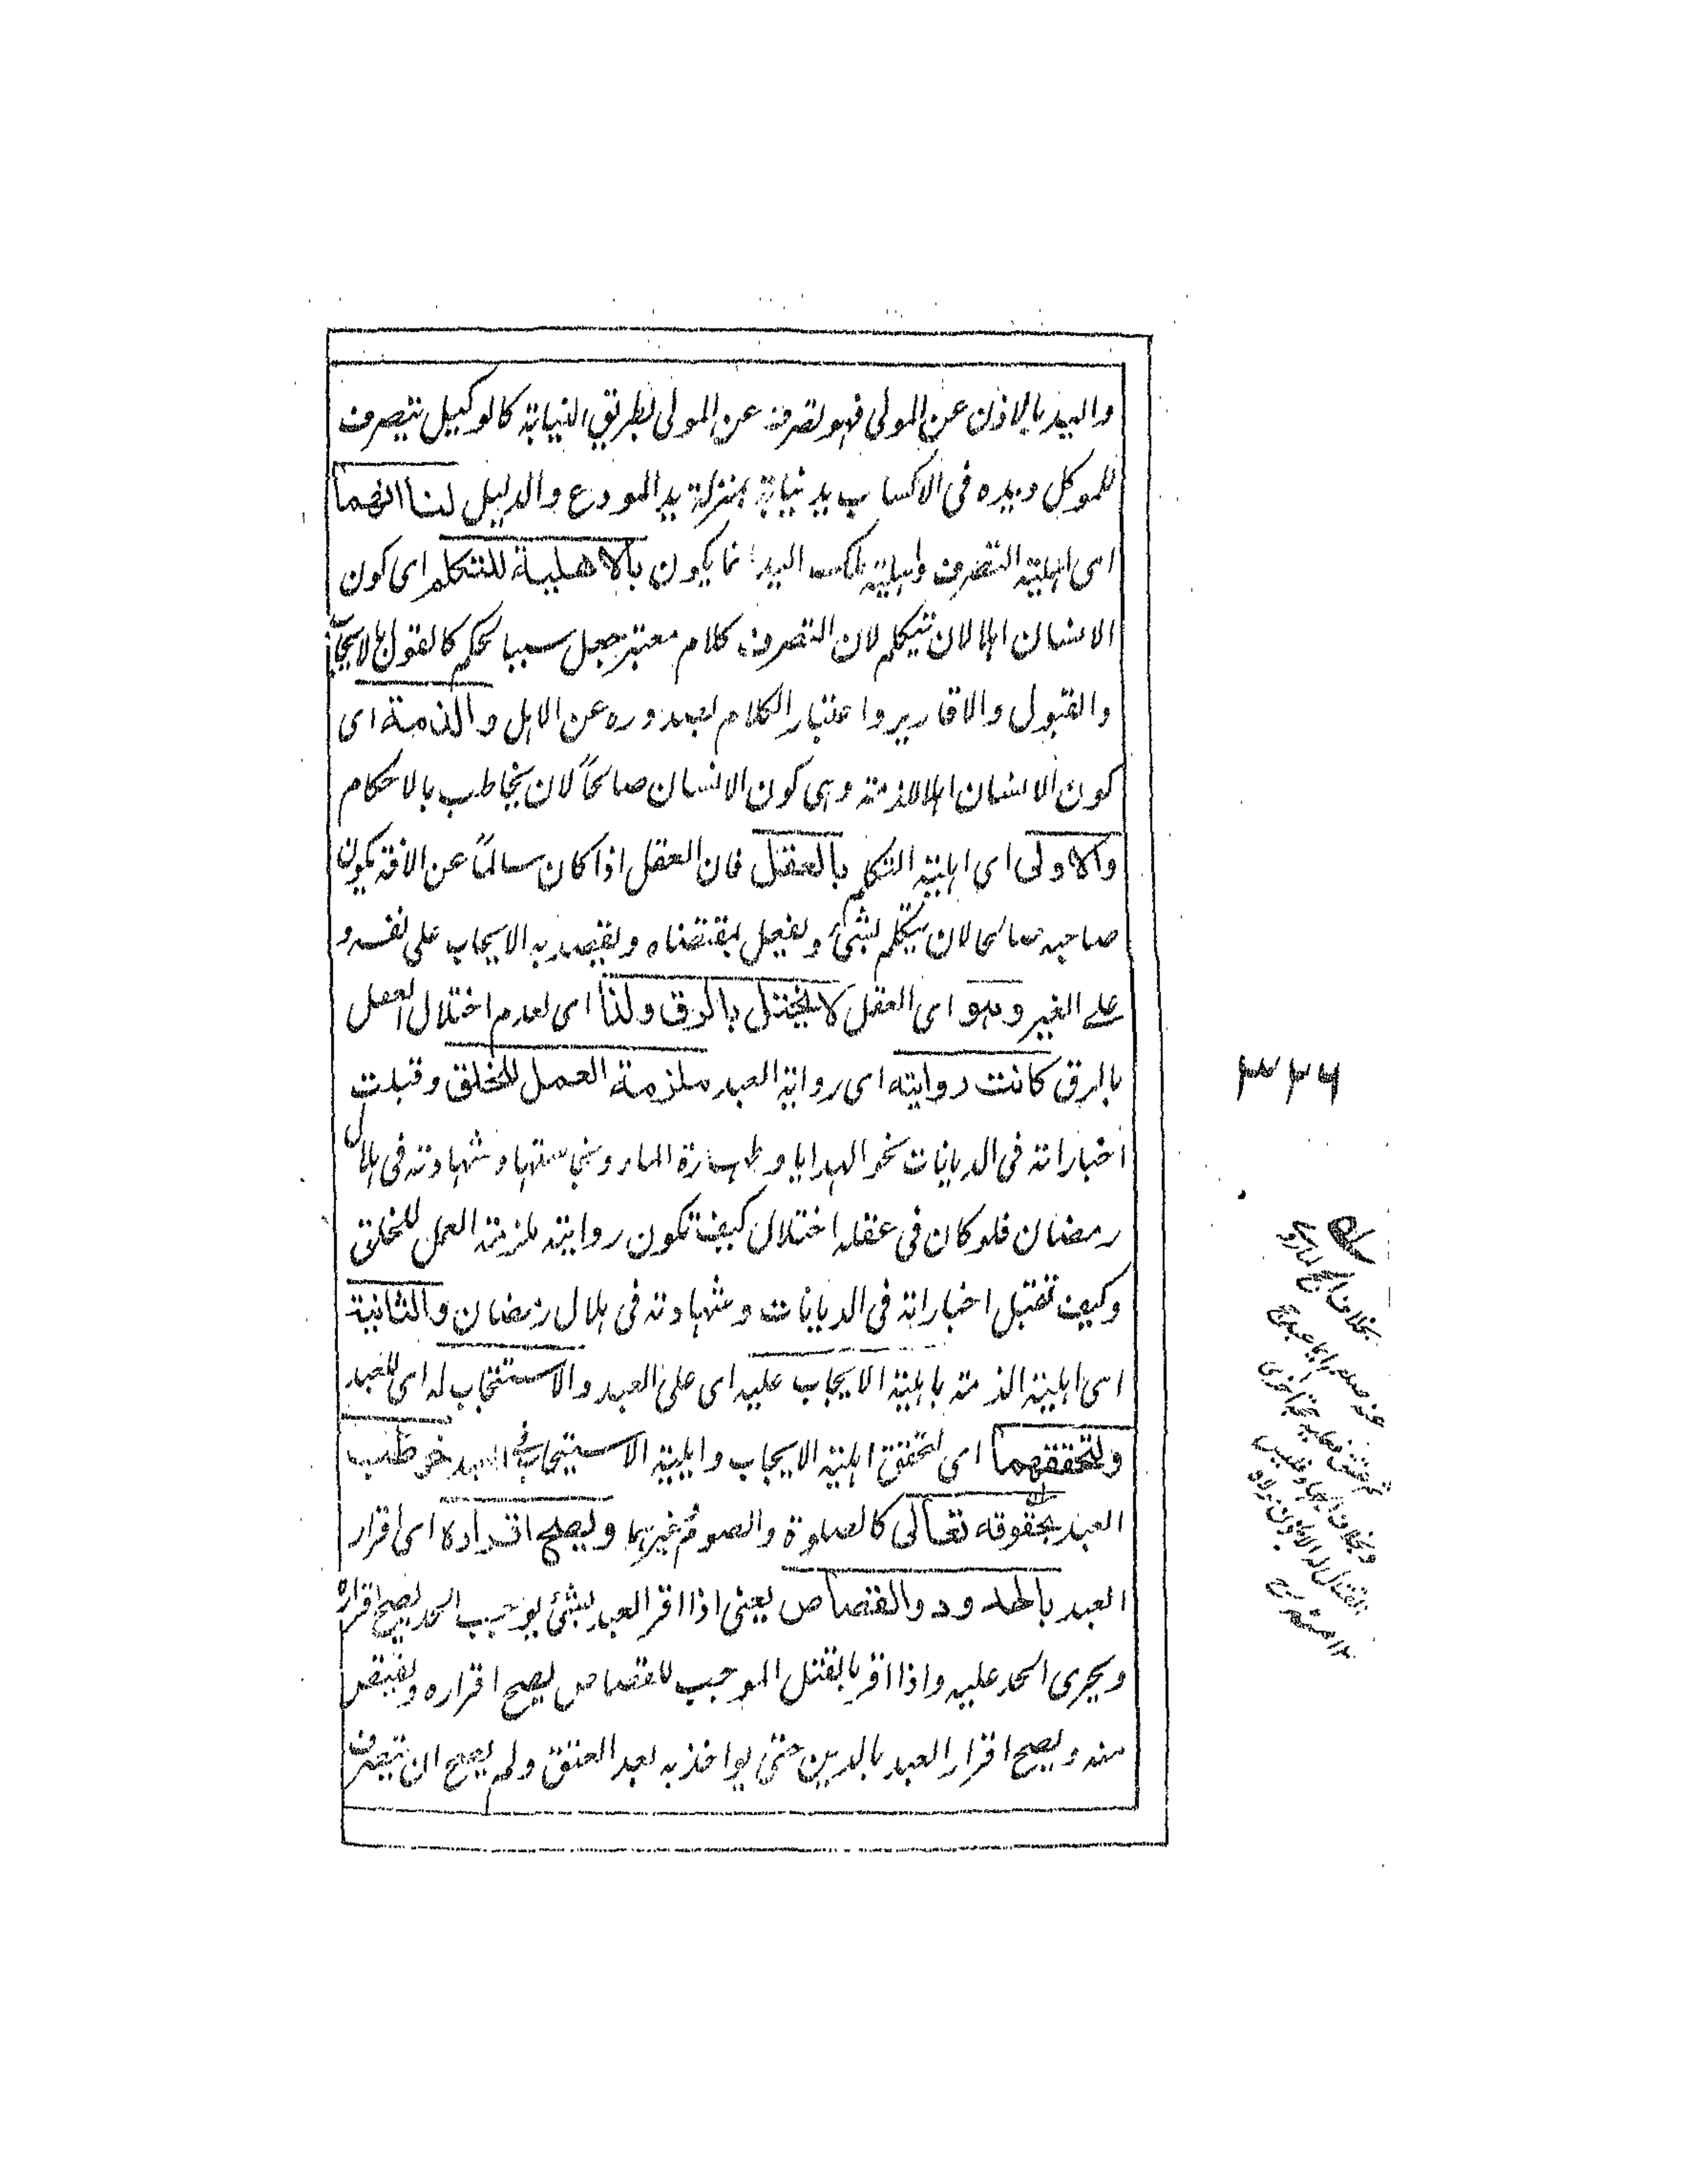 واليد بالاذن عن المولى فهو تصرف عن المولى بطريق النيابة كالوكيل يتصرف
للموكل ويده فى الاكساب يد نيابة بمنزلة يد المودع والدليل لنا انهما
اى اهلية التصرف واهلية ملك اليد انما يكون بالاهلية للتكلم اى كون
الانسان اهلا لان يتكلم لان التصرف كلام معتبر جعل سببا لحكم كالقول بالايجاب
والقبول والاقارير واعتبار الكلام بصدوره عن الاهل والذمة اى
كون الانسان اهلا لذمة وهى كون الانسان صالحاً لان يخاطب بالاحكام
والاولى اى اهلية التكلم بالعقل فان العقل اذا كان سالماً عن الافة يكون
صاحبه صالحا لان يتكلم بشئ ويفعل بمقتضاه ويقصد به الايجاب على نفسه و
على الغير وهو اى العقل لا يختل بالرق ولذا اى لعدم اختلال العقل
بالرق كانت روايته اى رواية العبد ملزمة العمل للخلق وقبلت
اخباراته فى الديانات نحو الهدايا وطهارة الماء ونجاستها وشهادته فى هلال
رمضان فلو كان فى عقله اختلال كيف تكون روايته ملزمة العمل للخلق
وكيف تقبل اخباراته فى الديانات وشهادته فى هلال رمضان والثانية
اى اهلية الذمة باهلية الايجاب عليه اى على العبد والاستيجاب له اى للعبد
ولتحققهما اى لتحقق اهلية الايجاب واهلية الاستيجاب فى العبد خوطب
العبد بحقوقه تعالى كالصلوة والصوم وغيرهما ويصح اقراره اى اقرار
العبد بالحدود والقصاص يعنى اذا اقر العبد بشئ يوجب الحد يصح اقراره
ويجرى الحد عليه واذا اقر بالقتل الموجب للقصاص يصح اقراره ويقتص
منه ويصح اقرار العبد بالدين حتى يواخذ به بعد العتق ولم يصح ان يتصرف
٣٢٦